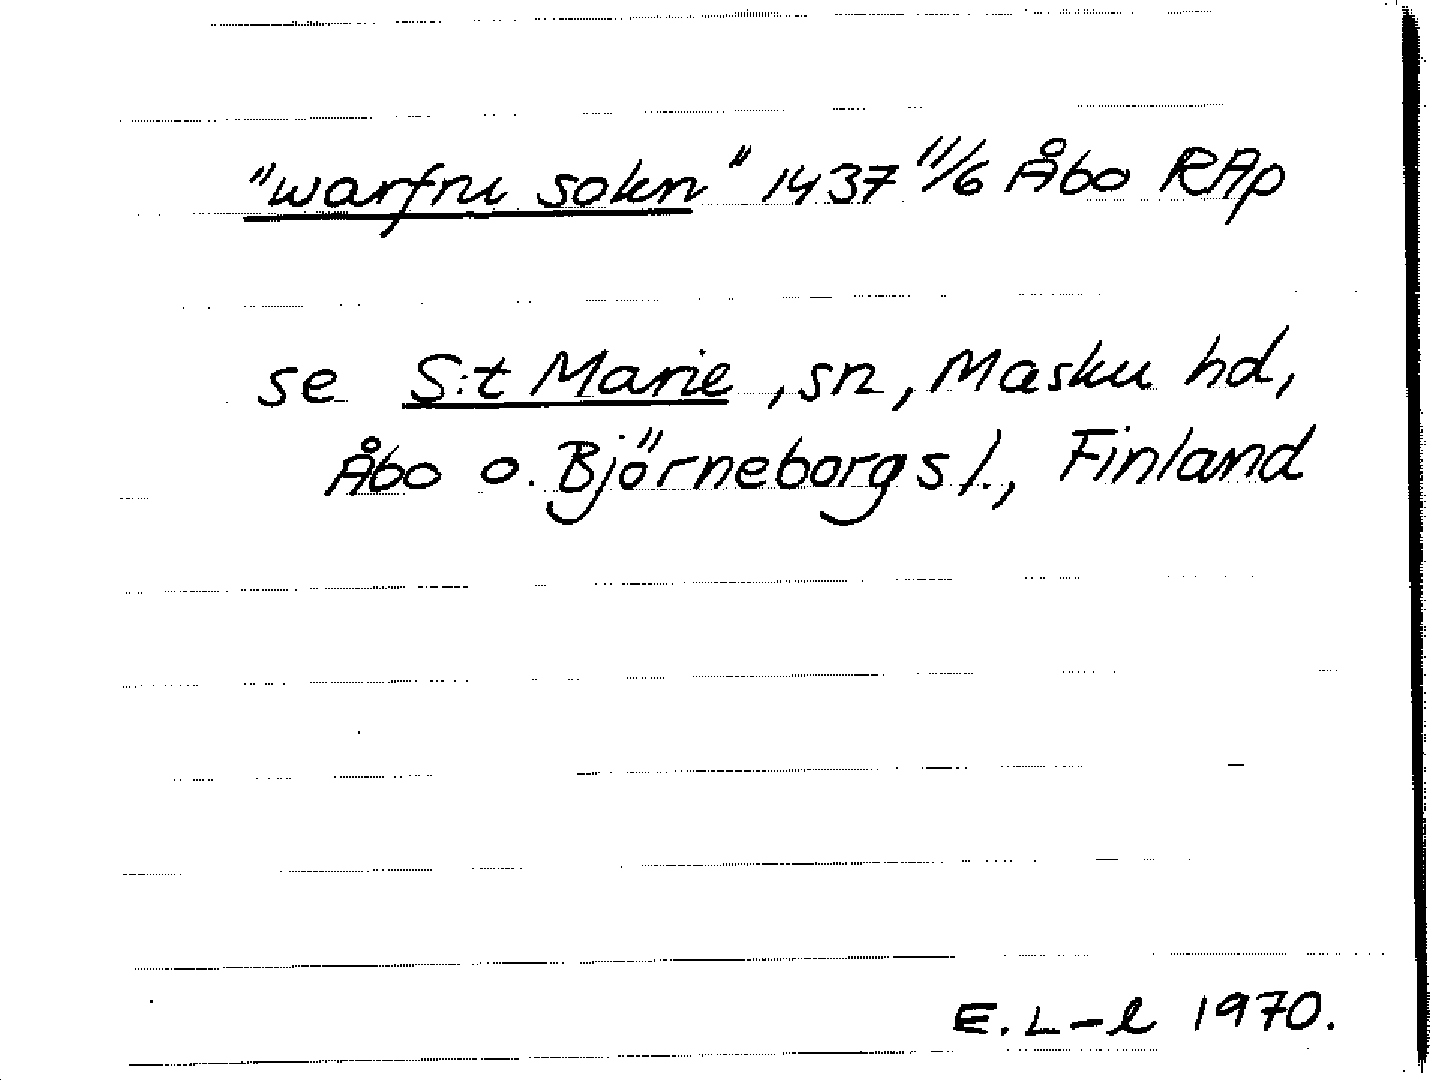 "warfru sokn" 1437 11/6 Åbo RAp
se S:t Marie, sn, Masku hd,
Åbo o. Björneborgs l., Finland
E. L-l 1970.